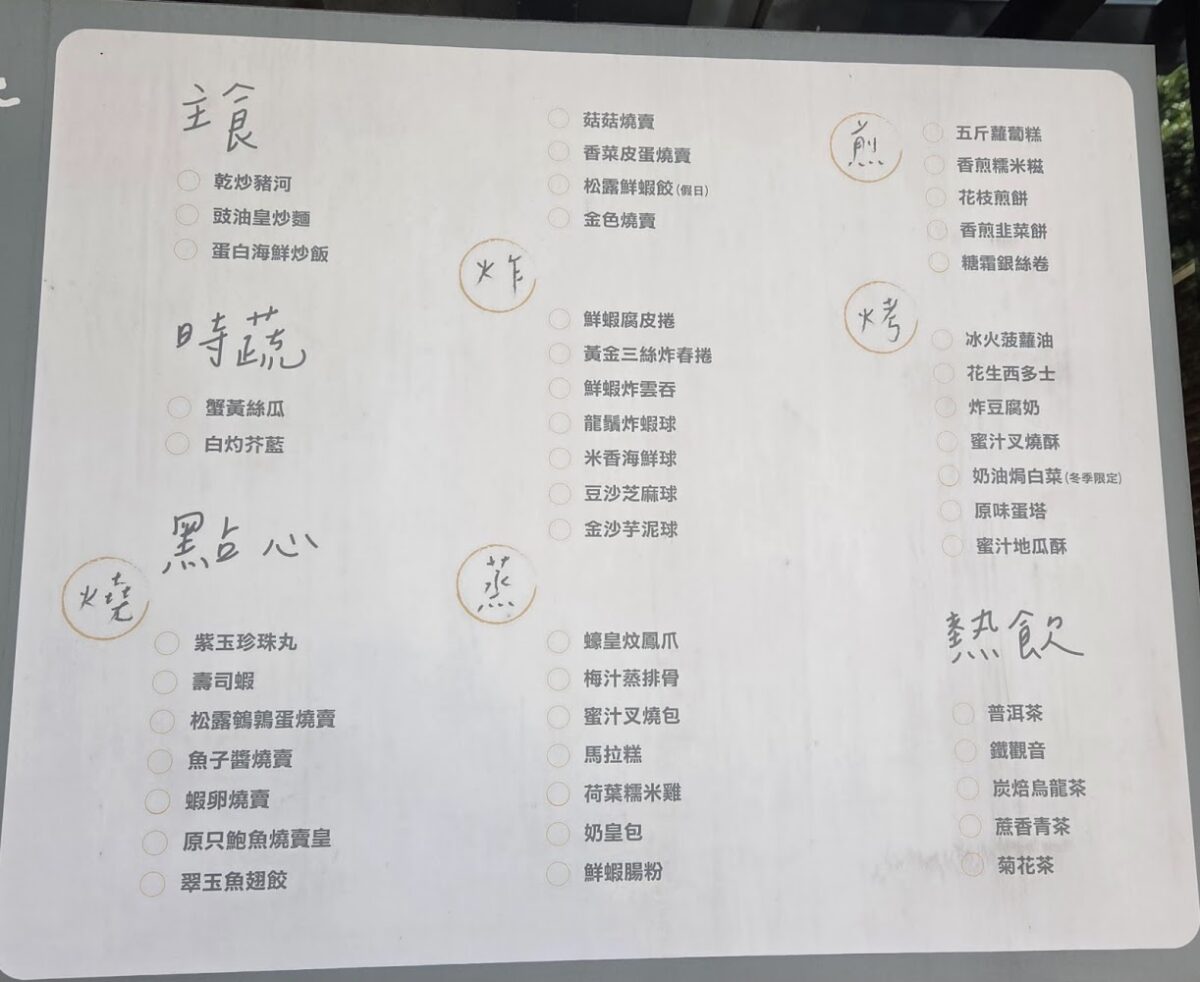 主食
乾炒豬河
豉油皇炒麵
蛋白海鮮炒飯
時蔬
蟹黃絲瓜
白灼芥藍
點心
燒
紫玉珍珠丸
壽司蝦
松露鵪鶉蛋燒賣
魚子醬燒賣
蝦卵燒賣
原只鮑魚燒賣皇
翠玉魚翅餃
菇菇燒賣
香菜皮蛋燒賣
松露鮮蝦餃(假日)
金色燒賣
炸
鮮蝦腐皮捲
黃金三絲炸春捲
鮮蝦炸雲吞
龍鬚炸蝦球
米香海鮮球
豆沙芝麻球
金沙芋泥球
蒸
蠔皇炆鳳爪
梅汁蒸排骨
蜜汁叉燒包
馬拉糕
荷葉糯米雞
奶皇包
鮮蝦腸粉
煎
五斤蘿蔔糕
香煎糯米糍
花枝煎餅
香煎韭菜餅
糖霜銀絲卷
烤
冰火菠蘿油
花生西多士
炸豆腐奶
蜜汁叉燒酥
奶油焗白菜(冬季限定)
原味蛋塔
蜜汁地瓜酥
熱飲
普洱茶
鐵觀音
炭焙烏龍茶
蔗香青茶
菊花茶